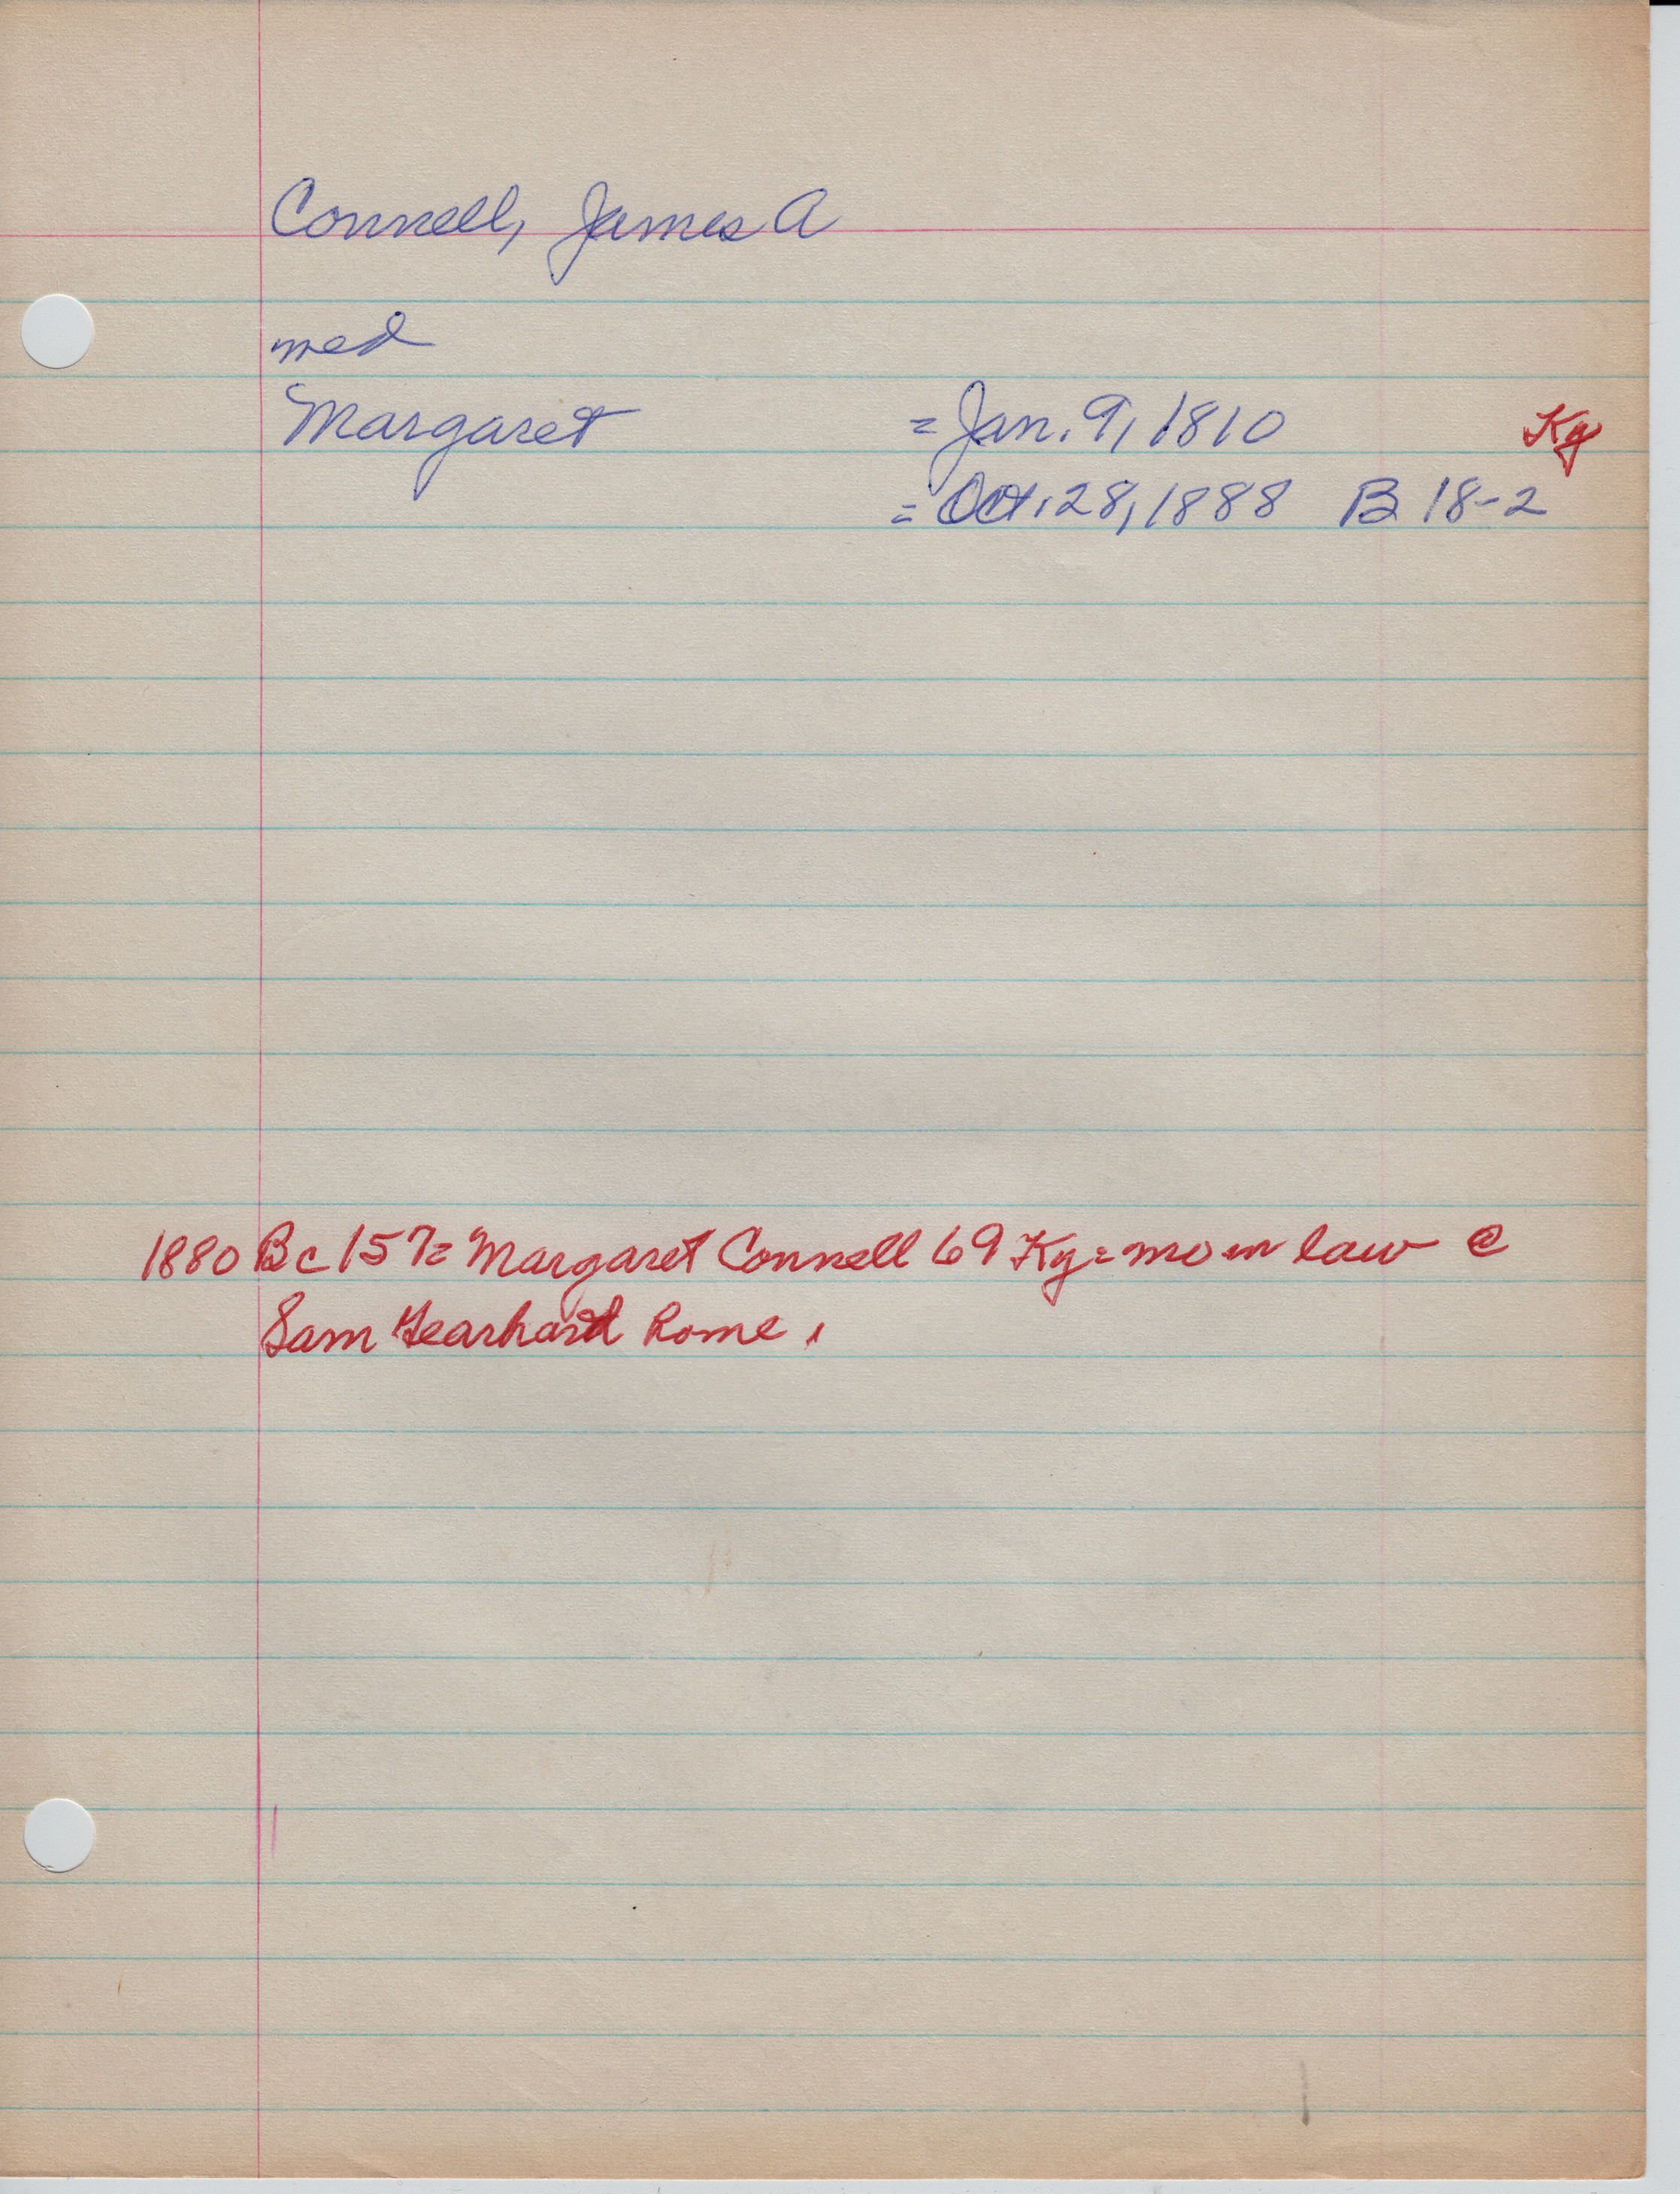 Connell, James A
med
Margaret = Jan. 9, 1810 Ky
= Oct. 28, 1888 B 18-2
1880 Bc 157= Margaret Connell 69 Ky = mo in law @
Sam Gearhart Rome.